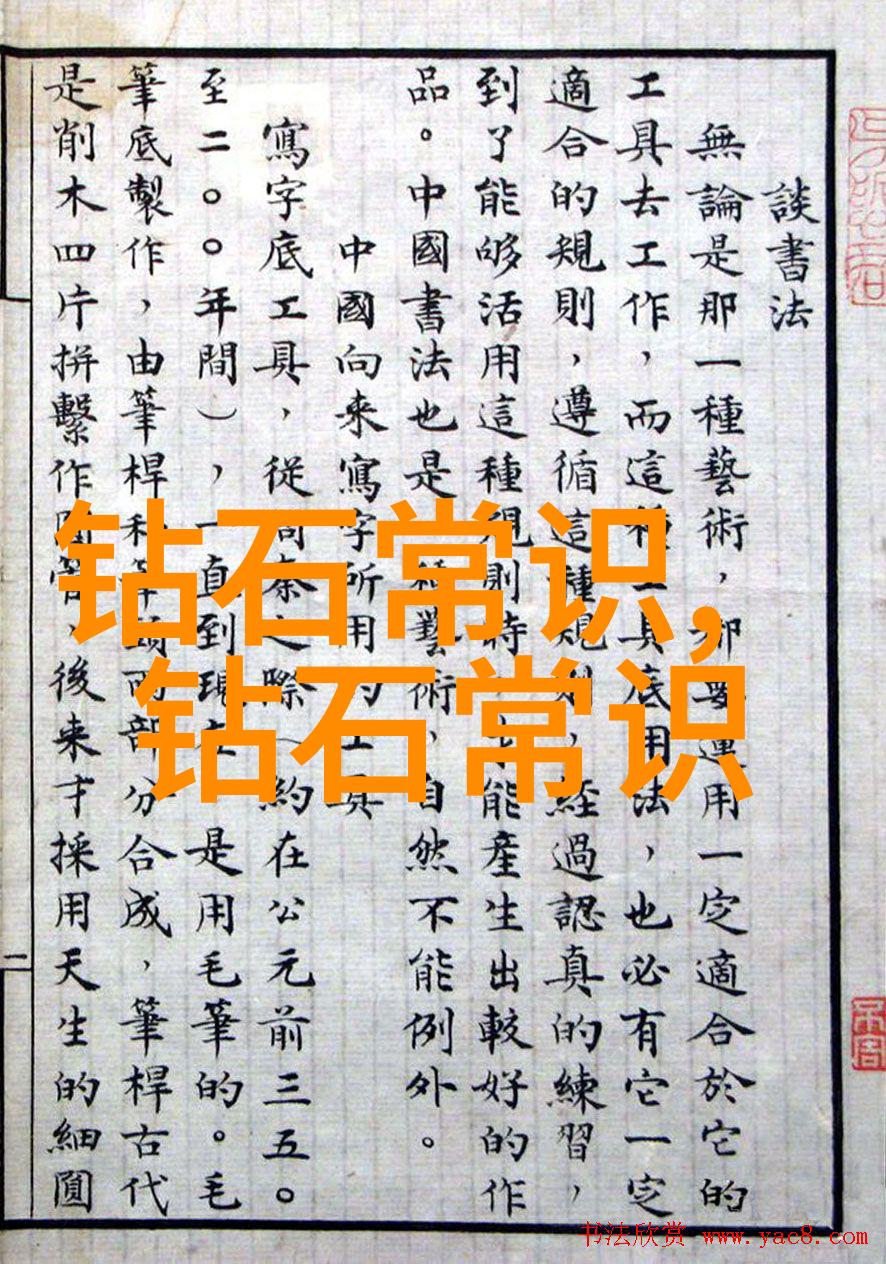 談書法
無論是那一種藝術，都要運用一定適合於它的
工具去工作，而這種工具底用法，也必有它一定
適合的規則，遵循這種規則，經過認真的練習，
到了能够活用這種規則時，才能產生出較好的作
品。中國書法也是一種藝術，自然不能例外。
中國向来寫字所用的工具
寫字底工具，從周秦之際（約在公元前三五〇
至二〇〇年間），一直到現在，是用毛筆的。毛
筆底製作，由筆桿和筆頭兩部分合成，筆桿古代
是削木四片拼繫作圓管，後来才採用天生的細圓
二
钻石常识，
钻石常识
书法欣赏 www.yac8.com